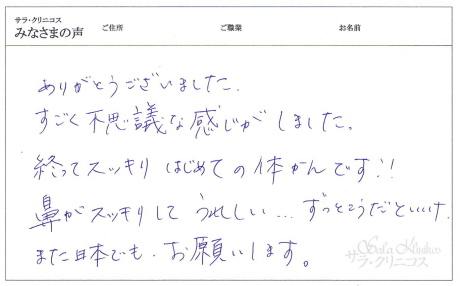 サラ・クリニコス
みなさまの声 ご住所 ご職業 お名前
ありがとうございました.
すごく不思議な感じがしました。
終ってスッキリ はじめての体かんです!!
鼻がスッキリして うれしい... ずっとこうだといいけ.
また日本でも、お願いします。
Sala Klinikos
サラ・クリニコス